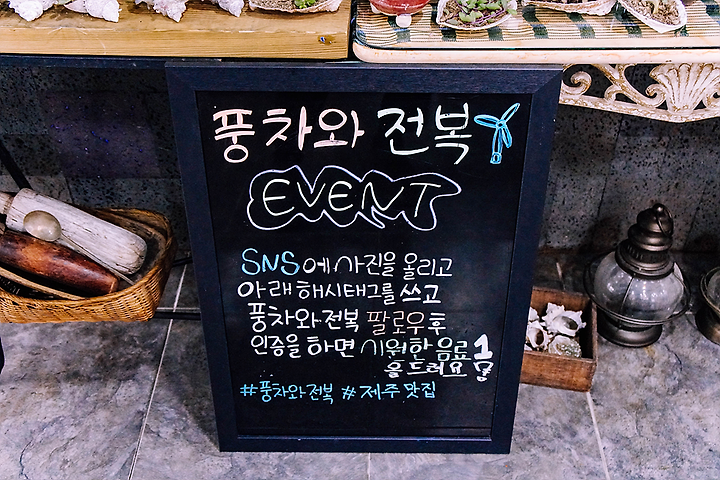 풍차와 전복
EVENT
SNS에 사진을 올리고
아래 해시태그를 쓰고
풍차와전복 팔로우 후
인증을 하면 시원한 음료
을 드려요!
#풍차와전복 #제주맛집